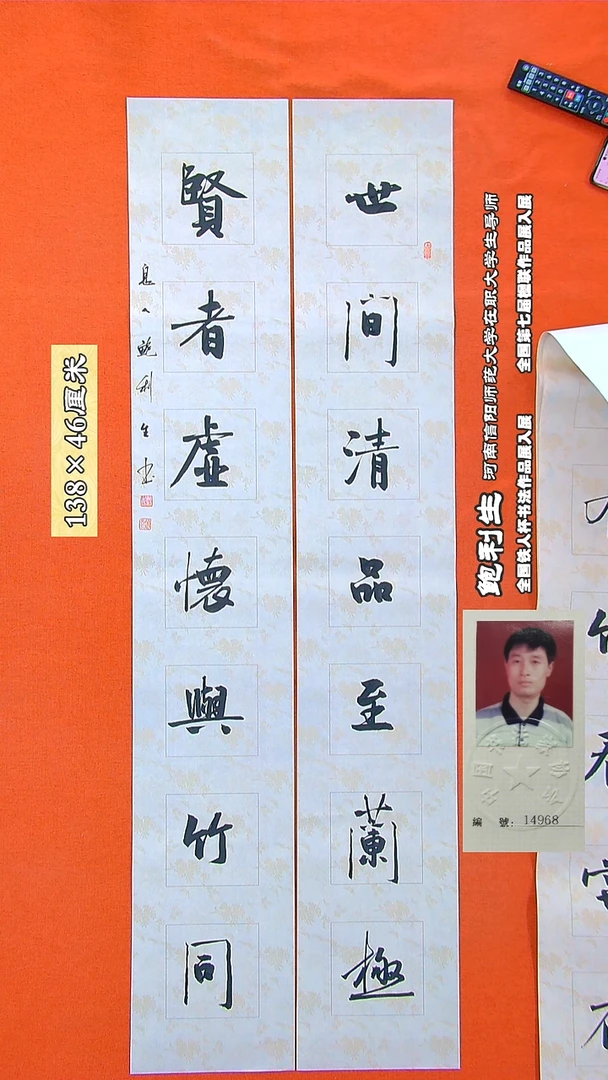 世間清品至蘭極
賢者虚懷與竹同
息人鲍利生書
138×46厘米
鲍利生 河南信阳师范大学在职大学生导师
全国铁人杯书法作品展入展 全国第七届楹联作品展入展
編 號: 14968